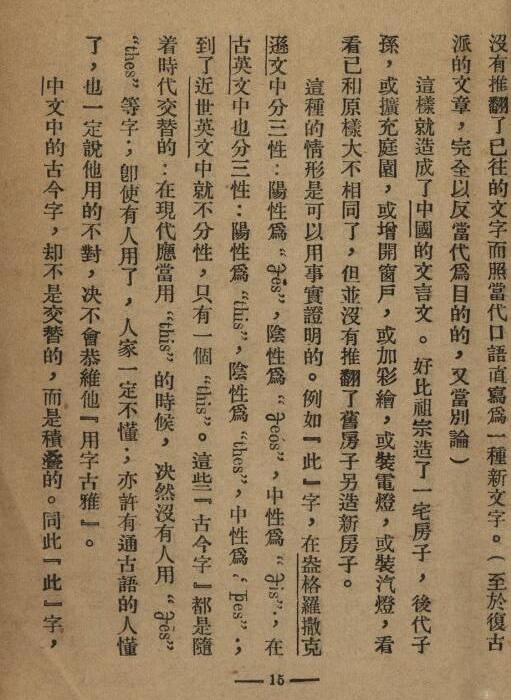 沒有推翻了已往的文字而照當代口語直寫爲一種新文字。(至於復古
派的文章,完全以反當代爲目的的,又當別論)
這樣就造成了中國的文言文。好比祖宗造了一宅房子,後代子
孫,或擴充庭園,或增開窗戶,或加彩繪,或裝電燈,或裝汽燈,看
看已和原樣大不相同了,但並沒有推翻了舊房子另造新房子。
這種的情形是可以用事實證明的。例如『此』字,在盎格羅撒克
遜文中分三性:陽性爲“þes”,陰性爲“þeós”,中性爲“þis”;在
古英文中也分三性:陽性爲“this”,陰性爲“thes”,中性爲“þes”;
到了近世英文中就不分性,只有一個“this”。這些『古今字』都是隨
着時代交替的:在現代應當用“this”的時候,决然沒有人用“þés”
“thes”等字;卽使有人用了,人家一定不懂;亦許有通古語的人懂
了,也一定說他用的不對,决不會恭維他『用字古雅』。
中文中的古今字,却不是交替的,而是積叠的。同此『此』字,
— 15 —